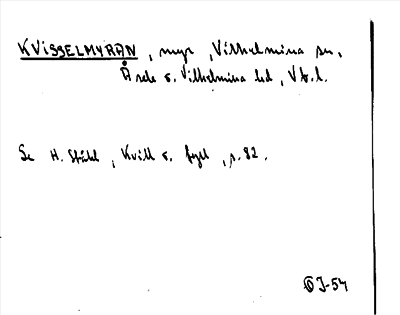 KVISSELMYRAN, myr, Vilhelmina sn,
Åsele o. Vilhelmina td, Vb.l.
Se H. Ståhl, Kvill o. tjäl, s. 82.
J-54